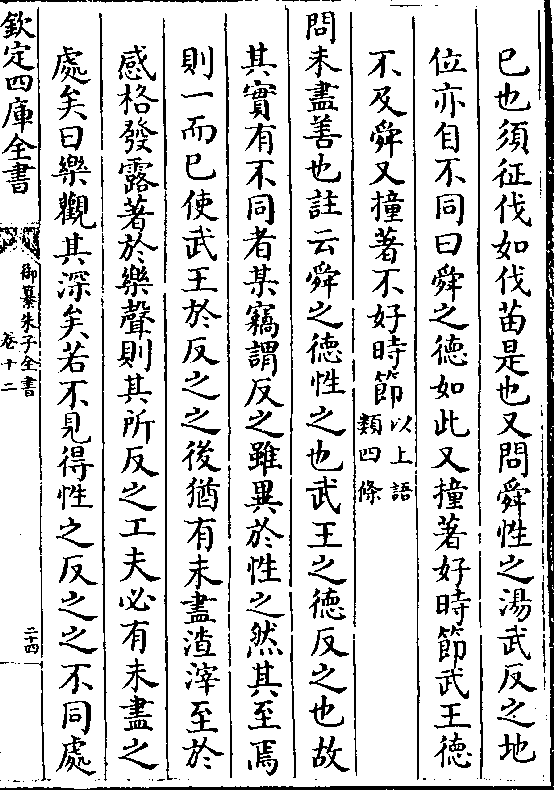 已也須征伐如伐苗是也又問舜性之湯武反之地
位亦自不同曰舜之德如此又撞著好時節武王德
不及舜又撞著不好時節以上語
類四條
問未盡善也註云舜之德性之也武王之德反之也故
其實有不同者某竊謂反之雖異於性之然其至焉
則一而已使武王於反之之後猶有未盡渣滓至於
感格發露著於樂聲則其所反之工夫必有未盡之
處矣曰樂觀其深矣若不見得性之反之之不同處
欽定四庫全書
御纂朱子全書
卷十二
二十四